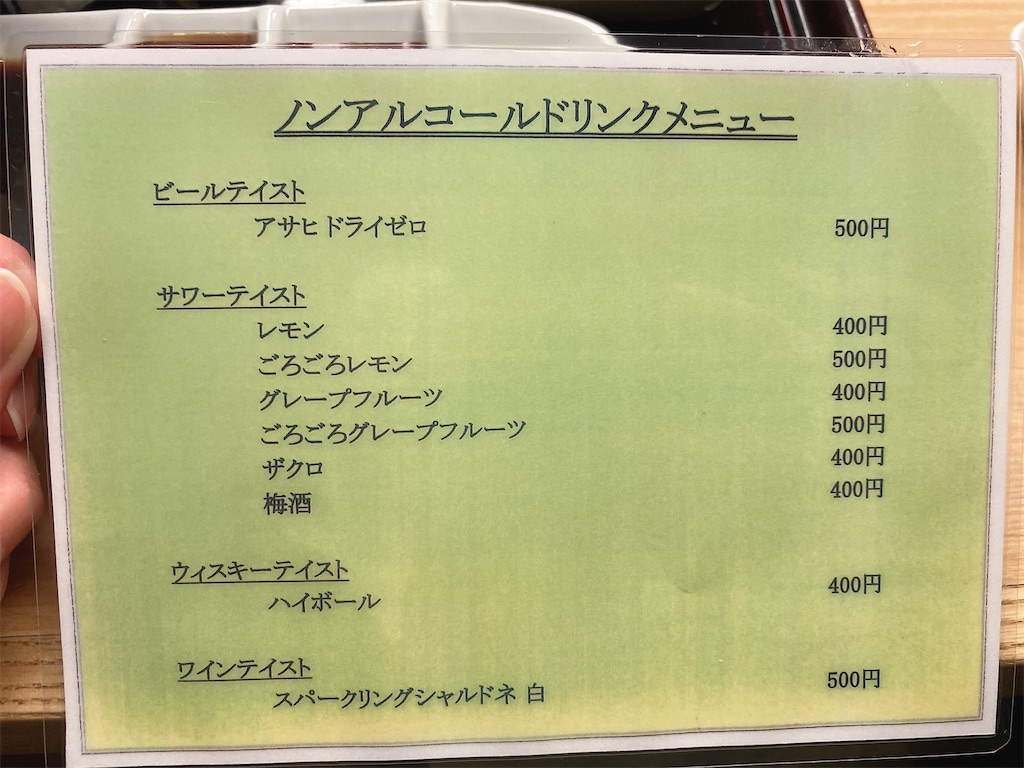 ノンアルコールドリンクメニュー
ビールテイスト
アサヒ ドライゼロ 500円
サワーテイスト
レモン 400円
ごろごろレモン 500円
グレープフルーツ 400円
ごろごろグレープフルーツ 500円
ザクロ 400円
梅酒 400円
ウィスキーテイスト
ハイボール 400円
ワインテイスト
スパークリングシャルドネ 白 500円